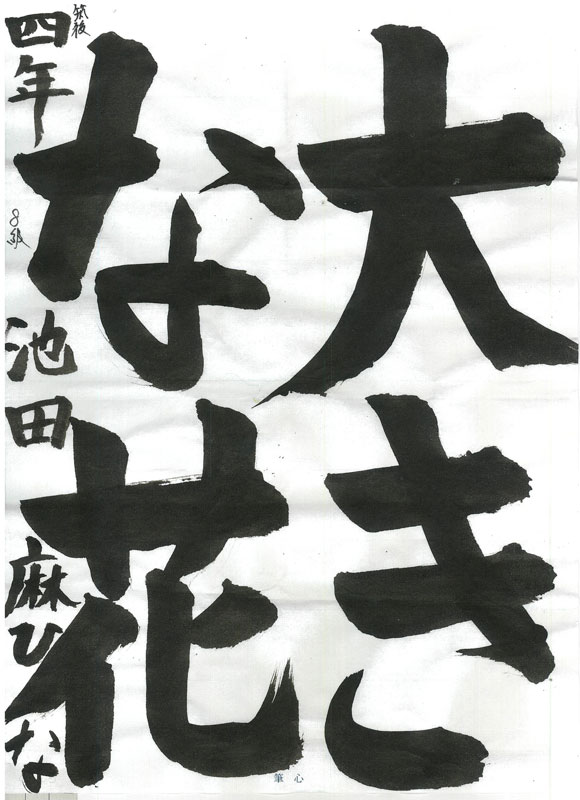 大き
な花
筑後
四年 8級 池田 麻ひな
心筆